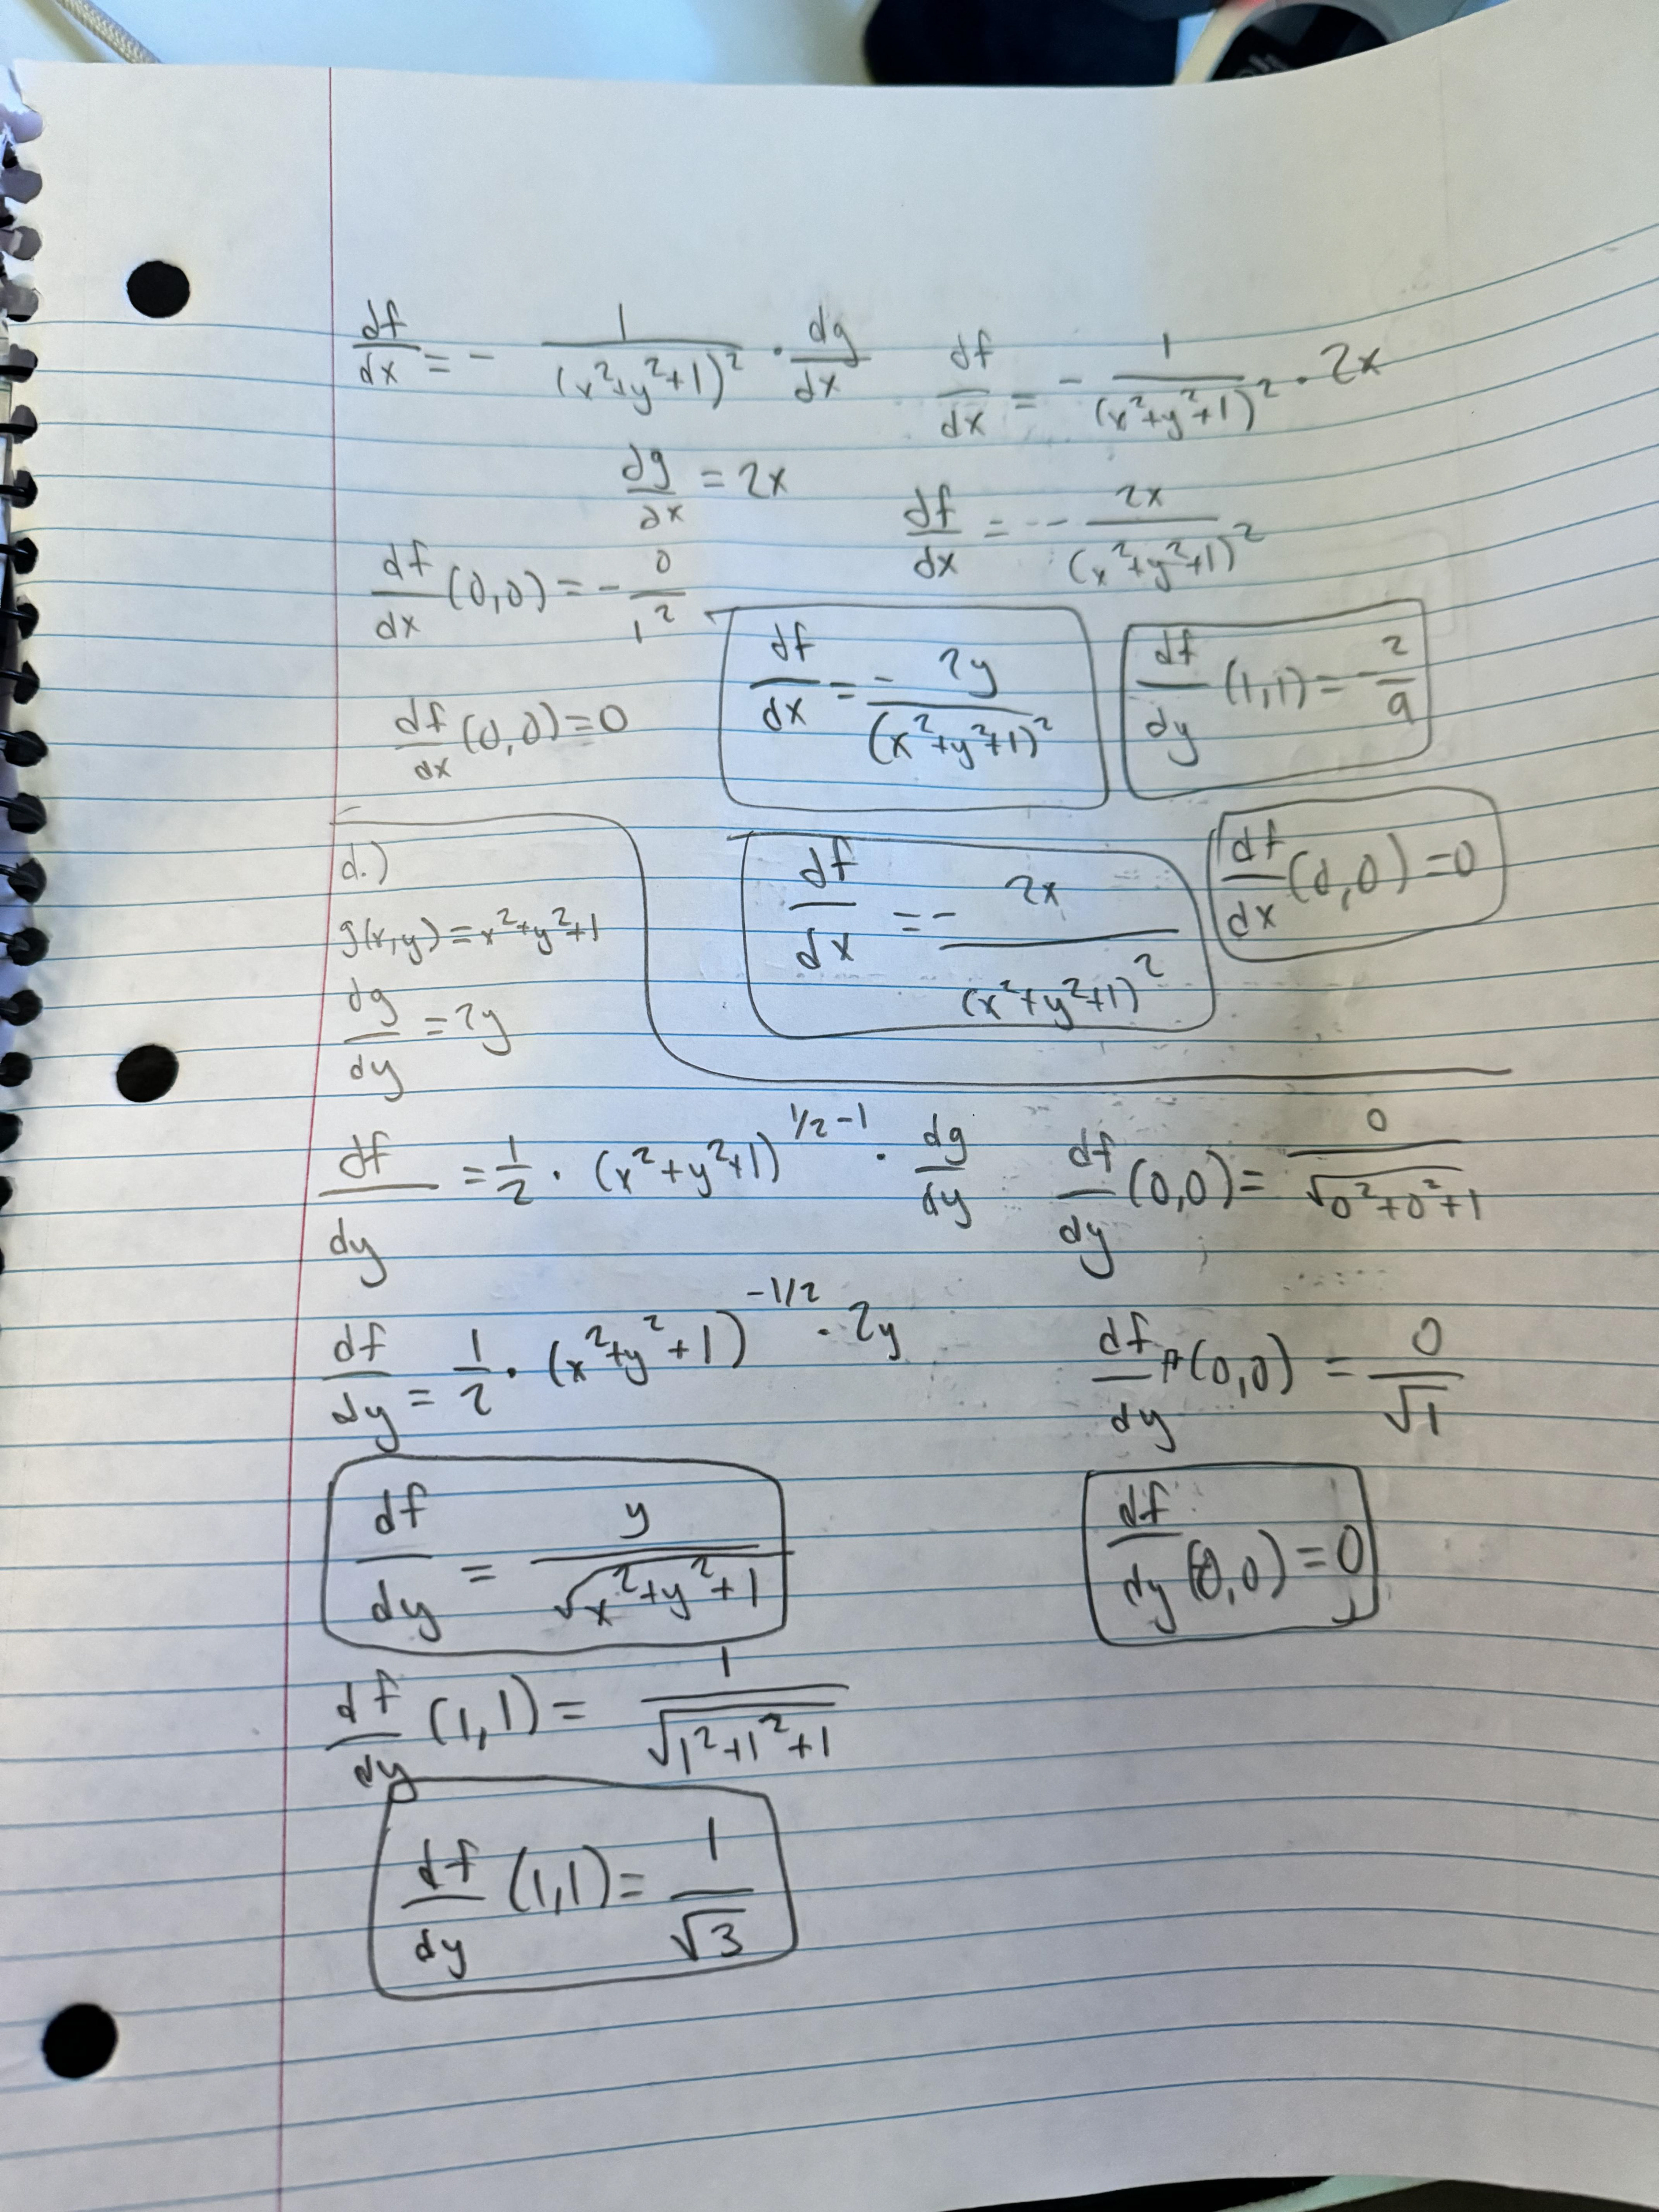 df/dx = - 1/(x²+y²+1)² · dg/dx
df/dx = - 1/(x²+y²+1)² · 2x
dg/dx = 2x
df/dx = - 2x/(x²+y²+1)²
df/dx (0,0) = - 0/1²
df/dx = - 2y/(x²+y²+1)²
df/dy (1,1) = - 2/9
df/dx (0,0) = 0
df/dx = - 2x/(x²+y²+1)²
df/dx (0,0) = 0
d.)
g(x,y) = x²+y²+1
dg/dy = 2y
df/dy = 1/2 · (x²+y²+1)^(1/2-1) · dg/dy
df/dy (0,0) = 0/√(0²+0²+1)
df/dy = 1/2 · (x²+y²+1)^(-1/2) · 2y
df/dy (0,0) = 0/√1
df/dy = y/√(x²+y²+1)
df/dy (0,0) = 0
df/dy (1,1) = 1/√(1²+1²+1)
df/dy (1,1) = 1/√3